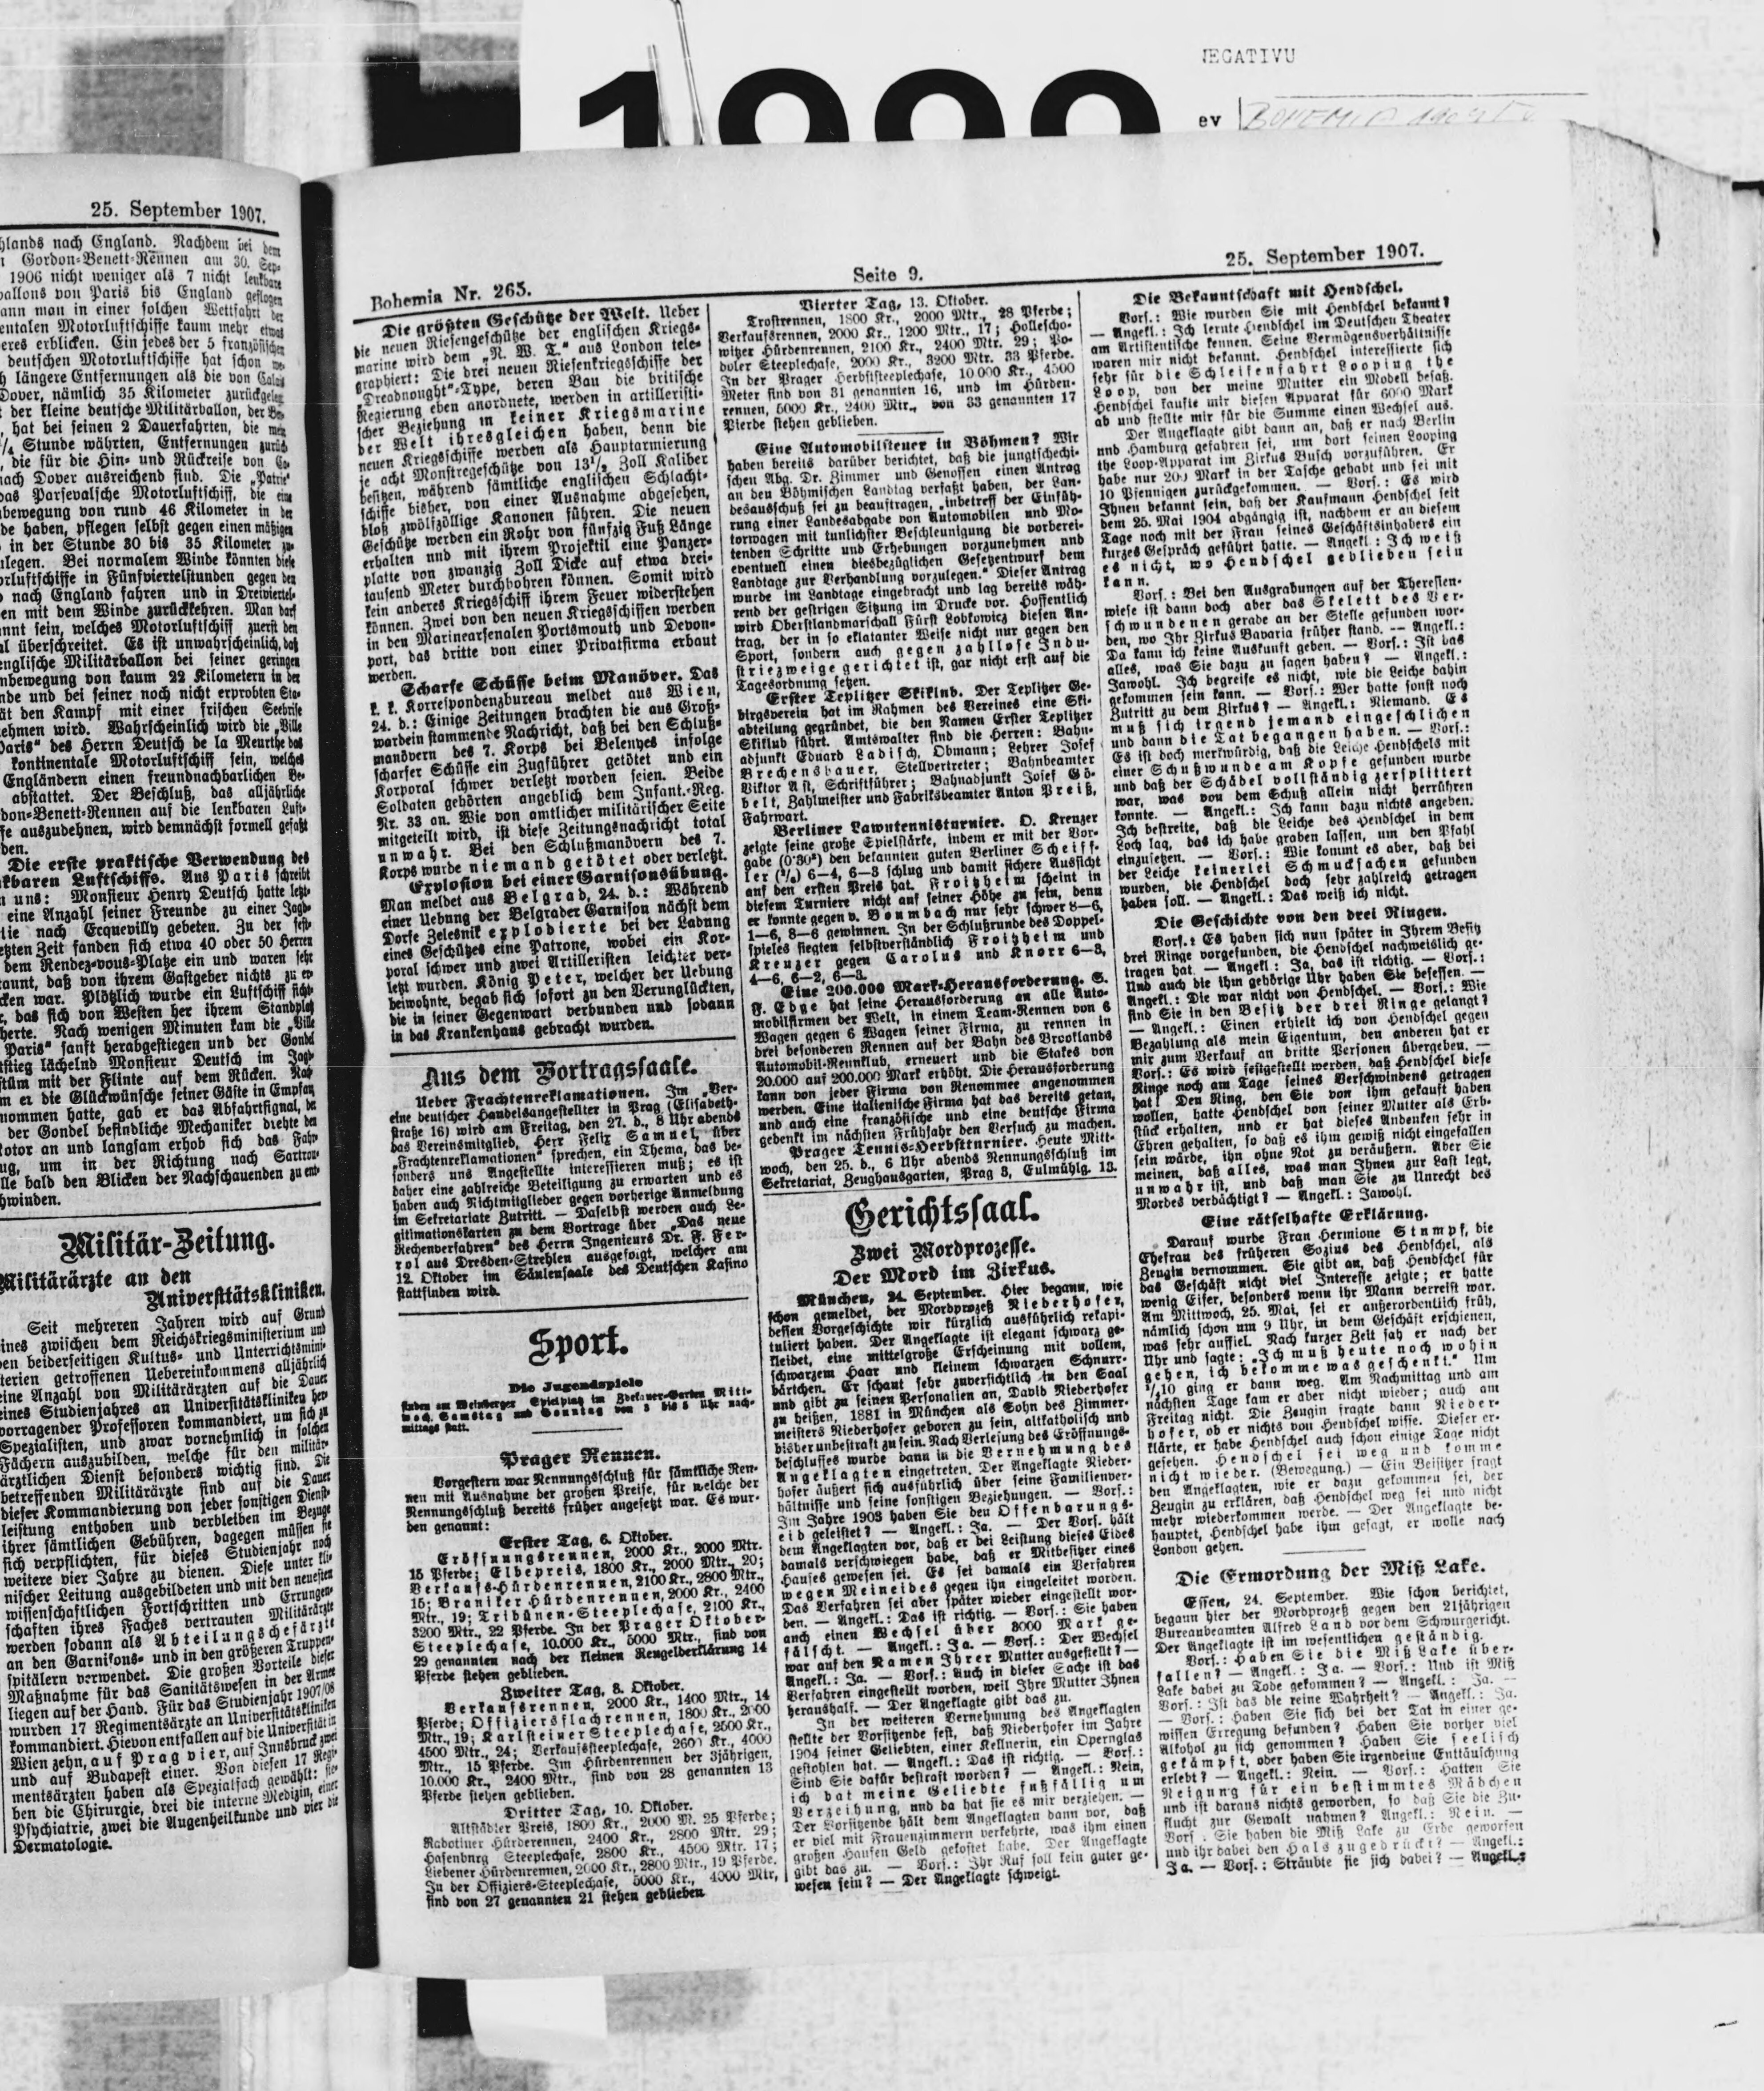 1900
NEGATIVU
ev
25. September 1907.
hlands nach England. Nachdem bei dem
Gordon-Benett-Rennen am 30. Sep-
1906 nicht weniger als 7 nicht lenkbare
ballons von Paris bis England geflogen
ann man in einer solchen Wettfahrt der
entalen Motorluftschiffe kaum mehr etwas
eres erblicken. Ein jedes der 5 französischen
deutschen Motorluftschiffe hat schon we-
h längere Entfernungen als die von Calais
Dover, nämlich 35 Kilometer zurückgelegt
der kleine deutsche Militärballon, der Be-
, hat bei seinen 2 Dauerfahrten, die mehr
/4 Stunde währten, Entfernungen zurück
, die für die Hin- und Rückreise von Ca-
nach Dover ausreichend sind. Die „Patrie"
das Parsevalsche Motorluftschiff, die eine
bewegung von rund 46 Kilometer in der
de haben, pflegen selbst gegen einen mäßigen
in der Stunde 30 bis 35 Kilometer zu-
ulegen. Bei normalem Winde könnten diese
orluftschiffe in Fünfviertelstunden gegen den
nach England fahren und in Dreiviertel-
en mit dem Winde zurückkehren. Man darf
annt sein, welches Motorluftschiff zuerst den
al überschreitet. Es ist unwahrscheinlich, daß
englische Militärballon bei seiner geringen
nbewegung von kaum 22 Kilometern in der
nde und bei seiner noch nicht erprobten Sta-
ät den Kampf mit einer frischen Seebrise
ehmen wird. Wahrscheinlich wird die „Ville
Paris" des Herrn Deutsch de la Meurthe das
kontinentale Motorluftschiff sein, welches
Engländern einen freundnachbarlichen Be-
abstattet. Der Beschluß, das alljährliche
don-Benett-Rennen auf die lenkbaren Luft-
fe auszudehnen, wird demnächst formell gefaßt
den.
Die erste praktische Verwendung des
kbaren Luftschiffs. Aus Paris schreibt
n uns: Monsieur Henry Deutsch hatte letzt-
eine Anzahl seiner Freunde zu einer Jagd-
tie nach Ecquevilly gebeten. Zu der fest-
etzten Zeit fanden sich etwa 40 oder 50 Herren
dem Rendez-vous-Platze ein und waren sehr
tannt, daß von ihrem Gastgeber nichts zu er-
cken war. Plötzlich wurde ein Luftschiff sicht-
r, das sich von Westen her ihrem Standplatz
herte. Nach wenigen Minuten kam die „Ville
Paris" sanft herabgestiegen und der Gondel
tstieg lächelnd Monsieur Deutsch im Jagd-
stüm mit der Flinte auf dem Rücken. Nach-
m er die Glückwünsche seiner Gäste in Empfang
nommen hatte, gab er das Abfahrtsignal, der
der Gondel befindliche Mechaniker drehte den
Motor an und langsam erhob sich das Fahr-
ug, um in der Richtung nach Sartrou-
lle bald den Blicken der Nachschauenden zu ent-
hwinden.
Militär-Zeitung.
Militärärzte an den
Universitätskliniken.
Seit mehreren Jahren wird auf Grund
eines zwischen dem Reichskriegsministerium und
den beiderseitigen Kultus- und Unterrichtsmini-
sterien getroffenen Uebereinkommens alljährlich
eine Anzahl von Militärärzten auf die Dauer
eines Studienjahres an Universitätskliniken her-
vorragender Professoren kommandiert, um sich zu
Spezialisten, und zwar vornehmlich in solchen
Fächern auszubilden, welche für den militär-
ärztlichen Dienst besonders wichtig sind. Die
betreffenden Militärärzte sind auf die Dauer
dieser Kommandierung von jeder sonstigen Dienst-
leistung enthoben und verbleiben im Bezuge
ihrer sämtlichen Gebühren, dagegen müssen sie
sich verpflichten, für dieses Studienjahr noch
weitere vier Jahre zu dienen. Diese unter kli-
nischer Leitung ausgebildeten und mit den neuesten
wissenschaftlichen Fortschritten und Errungen-
schaften ihres Faches vertrauten Militärärzte
werden sodann als Abteilungschefärzte
an den Garnisons- und in den größeren Truppen-
spitälern verwendet. Die großen Vorteile dieser
Maßnahme für das Sanitätswesen in der Armee
liegen auf der Hand. Für das Studienjahr 1907/08
wurden 17 Regimentsärzte an Universitätskliniken
kommandiert. Hievon entfallen auf die Universität in
Wien zehn, auf Prag vier, auf Innsbruck zwei
und auf Budapest einer. Von diesen 17 Regi-
mentsärzten haben als Spezialfach gewählt: sie-
ben die Chirurgie, drei die interne Medizin, einer
Psychiatrie, zwei die Augenheilkunde und vier die
Dermatologie.
Bohemia Nr. 265.
Seite 9.
25. September 1907.
Die größten Geschütze der Welt. Ueber
die neuen Riesengeschütze der englischen Kriegs-
marine wird dem „N. W. T." aus London tele-
graphiert: Die drei neuen Riesenkriegsschiffe der
„Dreadnought"-Type, deren Bau die britische
Regierung eben anordnete, werden in artilleristi-
scher Beziehung in keiner Kriegsmarine
der Welt ihresgleichen haben, denn die
neuen Kriegsschiffe werden als Hauptarmierung
je acht Monstregeschütze von 13½ Zoll Kaliber
besitzen, während sämtliche englischen Schlacht-
schiffe bisher, von einer Ausnahme abgesehen,
bloß zwölfzöllige Kanonen führen. Die neuen
Geschütze werden ein Rohr von fünfzig Fuß Länge
erhalten und mit ihrem Projektil eine Panzer-
platte von zwanzig Zoll Dicke auf etwa drei-
tausend Meter durchbohren können. Somit wird
kein anderes Kriegsschiff ihrem Feuer widerstehen
können. Zwei von den neuen Kriegsschiffen werden
in den Marinearsenalen Portsmouth und Devon-
port, das dritte von einer Privatfirma erbaut
werden.
Scharfe Schüsse beim Manöver. Das
k. k. Korrespondenzbureau meldet aus Wien,
24. d.: Einige Zeitungen brachten die aus Groß-
wardein stammende Nachricht, daß bei den Schluß-
manövern des 7. Korps bei Belenyes infolge
scharfer Schüsse ein Zugführer getötet und ein
Korporal schwer verletzt worden seien. Beide
Soldaten gehörten angeblich dem Infant.-Reg.
Nr. 33 an. Wie von amtlicher militärischer Seite
mitgeteilt wird, ist diese Zeitungsnachricht total
unwahr. Bei den Schlußmanövern des 7.
Korps wurde niemand getötet oder verletzt.
Explosion bei einer Garnisonsübung.
Man meldet aus Belgrad, 24. d.: Während
einer Uebung der Belgrader Garnison nächst dem
Dorfe Zelesnik explodierte bei der Ladung
eines Geschützes eine Patrone, wobei ein Kor-
poral schwer und zwei Artilleristen leichter ver-
letzt wurden. König Peter, welcher der Uebung
beiwohnte, begab sich sofort zu den Verunglückten,
die in seiner Gegenwart verbunden und sodann
in das Krankenhaus gebracht wurden.
Aus dem Vortragssaale.
Ueber Frachtenreklamationen. Im „Ver-
eine deutscher Handelsangestellter in Prag (Elisabeth-
straße 16) wird am Freitag, den 27. d., 8 Uhr abends
das Vereinsmitglied, Herr Felix Samuel, über
„Frachtenreklamationen" sprechen, ein Thema, das be-
sonders uns Angestellte interessieren muß; es ist
daher eine zahlreiche Beteiligung zu erwarten und es
haben auch Nichtmitglieder gegen vorherige Anmeldung
im Sekretariate Zutritt. — Daselbst werden auch Le-
gitimationskarten zu dem Vortrage über „Das neue
Rechenverfahren" des Herrn Ingenieurs Dr. F. Fer-
rol aus Dresden-Strehlen ausgefolgt, welcher am
12. Oktober im Säulensaale des Deutschen Kasino
stattfinden wird.
Sport.
Die Jugendspiele
finden am Weinberger Spielplatz im Mitt-
woch, Samstag und Sonntag von 3 bis 5 Uhr nach-
mittags statt.
Prager Rennen.
Vorgestern war Nennungsschluß für sämtliche Ren-
nen mit Ausnahme der großen Preise, für welche der
Nennungsschluß bereits früher angesetzt war. Es wur-
den genannt:
Erster Tag, 6. Oktober.
Eröffnungsrennen, 2000 Kr., 2000 Mtr.
15 Pferde; Elbepreis, 1800 Kr., 2000 Mtr., 20;
Verkaufs-Hürdenrennen, 2100 Kr., 2800 Mtr.,
15; Braniker Hürdenrennen, 2000 Kr., 2400
Mtr., 19; Tribünen-Steeplechase, 2100 Kr.,
3200 Mtr., 22 Pferde. In der Prager Oktober-
Steeplechase, 10.000 Kr., 5000 Mtr., sind von
29 genannten nach der kleinen Reugelderklärung 14
Pferde stehen geblieben.
Zweiter Tag, 8. Oktober.
Verkaufsrennen, 2000 Kr., 1400 Mtr., 14
Pferde; Offiziersflachrennen, 1800 Kr., 2000
Mtr., 19; Karlsteiner Steeplechase, 2500 Kr.,
4500 Mtr., 24; Verkaufssteeplechase, 2600 Kr., 4000
Mtr., 15 Pferde. Im Hürdenrennen der 3jährigen,
10.000 Kr., 2400 Mtr., sind von 28 genannten 13
Pferde stehen geblieben.
Dritter Tag, 10. Oktober.
Altstädter Preis, 1800 Kr., 2000 M. 25 Pferde;
Radotiner Hürderennen, 2400 Kr., 2800 Mtr. 29;
Hasenburg Steeplechase, 2800 Kr., 4500 Mtr. 17;
Liebener Hürdenrennen, 2000 Kr., 2800 Mtr., 19 Pferde.
In der Offiziers-Steeplechase, 5000 Kr., 4000 Mtr,
sind von 27 genannten 21 stehen geblieben
Vierter Tag, 13. Oktober.
Trostrennen, 1800 Kr., 2000 Mtr., 28 Pferde;
Verkaufsrennen, 2000 Kr., 1200 Mtr., 17; Hollescho-
witzer Hürdenrennen, 2100 Kr., 2400 Mtr. 29; Po-
doler Steeplechase, 2000 Kr., 3200 Mtr. 33 Pferde.
In der Prager Herbststeeplechase, 10.000 Kr., 4500
Meter sind von 31 genannten 16, und im Hürden-
rennen, 5000 Kr., 2400 Mtr., von 33 genannten 17
Pferde stehen geblieben.
Eine Automobilsteuer in Böhmen? Wir
haben bereits darüber berichtet, daß die jungtschechi-
schen Abg. Dr. Zimmer und Genossen einen Antrag
an den Böhmischen Landtag verfaßt haben, der Lan-
desausschuß sei zu beauftragen, „inbetreff der Einfüh-
rung einer Landesabgabe von Automobilen und Mo-
torwagen mit tunlichster Beschleunigung die vorberei-
tenden Schritte und Erhebungen vorzunehmen und
eventuell einen diesbezüglichen Gesetzentwurf dem
Landtage zur Verhandlung vorzulegen." Dieser Antrag
wurde im Landtage eingebracht und lag bereits wäh-
rend der gestrigen Sitzung im Drucke vor. Hoffentlich
wird Oberstlandmarschall Fürst Lobkowicz diesen An-
trag, der in so eklatanter Weise nicht nur gegen den
Sport, sondern auch gegen zahllose Indu-
striezweige gerichtet ist, gar nicht erst auf die
Tagesordnung setzen.
Erster Teplitzer Skiklub. Der Teplitzer Ge-
birgsverein hat im Rahmen des Vereines eine Ski-
abteilung gegründet, die den Namen Erster Teplitzer
Skiklub führt. Amtswalter sind die Herren: Bahn-
adjunkt Eduard Ladisch, Obmann; Lehrer Josef
Brechensbauer, Stellvertreter; Bahnbeamter
Viktor Ast, Schriftführer; Bahnadjunkt Josef Gö-
belt, Zahlmeister und Fabriksbeamter Anton Preiß,
Fahrwart.
Berliner Lawntennisturnier. O. Kreuzer
zeigte seine große Spielstärke, indem er mit der Vor-
gabe (0·30²) den bekannten guten Berliner Scheiff-
ler 6—4, 6—3 schlug und damit sichere Aussicht
auf den ersten Preis hat. Froitzheim scheint in
diesem Turniere nicht auf seiner Höhe zu sein, denn
er konnte gegen v. Boumbach nur sehr schwer 8—6,
1—6, 8—6 gewinnen. In der Schlußrunde des Doppel-
spieles siegten selbstverständlich Froitzheim und
Kreuzer gegen Carolus und Knorr 6—3,
4—6, 6—2, 6—3.
Eine 200.000 Mark-Herausforderung. S.
F. Edge hat seine Herausforderung an alle Auto-
mobilfirmen der Welt, in einem Team-Rennen von 6
Wagen gegen 6 Wagen seiner Firma, zu rennen in
drei besonderen Rennen auf der Bahn des Brooklands
Automobil-Rennklub, erneuert und die Stakes von
20.000 auf 200.000 Mark erhöht. Die Herausforderung
kann von jeder Firma von Renommee angenommen
werden. Eine italienische Firma hat das bereits getan,
und auch eine französische und eine deutsche Firma
gedenkt im nächsten Frühjahr den Versuch zu machen.
Prager Tennis-Herbstturnier. Heute Mitt-
woch, den 25. d., 6 Uhr abends Nennungsschluß im
Sekretariat, Zeughausgarten, Prag 3, Eulmühlg. 13.
Gerichtssaal.
Zwei Mordprozesse.
Der Mord im Zirkus.
München, 24. September. Hier begann, wie
schon gemeldet, der Mordprozeß Niederhofer,
dessen Vorgeschichte wir kürzlich ausführlich rekapi-
tuliert haben. Der Angeklagte ist elegant schwarz ge-
kleidet, eine mittelgroße Erscheinung mit vollem,
schwarzem Haar und kleinem schwarzen Schnurr-
bärtchen. Er schaut sehr zuversichtlich in den Saal
und gibt zu seinen Personalien an, David Niederhofer
zu heißen, 1881 in München als Sohn des Zimmer-
meisters Niederhofer geboren zu sein, altkatholisch und
bisher unbestraft zu sein. Nach Verlesung des Eröffnungs-
beschlusses wurde dann in die Vernehmung des
Angeklagten eingetreten. Der Angeklagte Nieder-
hofer äußert sich ausführlich über seine Familienver-
hältnisse und seine sonstigen Beziehungen. — Vors.:
Im Jahre 1903 haben Sie den Offenbarungs-
eid geleistet? — Angekl.: Ja. — Der Vors. hält
dem Angeklagten vor, daß er bei Leistung dieses Eides
damals verschwiegen habe, daß er Mitbesitzer eines
Hauses gewesen sei. Es sei damals ein Verfahren
wegen Meineides gegen ihn eingeleitet worden.
Das Verfahren sei aber später wieder eingestellt wor-
den. — Angekl.: Das ist richtig. — Vors.: Sie haben
auch einen Wechsel über 3000 Mark ge-
fälscht. — Angekl.: Ja. — Vors.: Der Wechsel
war auf den Namen Ihrer Mutter ausgestellt? —
Angekl.: Ja. — Vors.: Auch in dieser Sache ist das
Verfahren eingestellt worden, weil Ihre Mutter Ihnen
heraushalf. — Der Angeklagte gibt das zu.
In der weiteren Vernehmung des Angeklagten
stellte der Vorsitzende fest, daß Niederhofer im Jahre
1904 seiner Geliebten, einer Kellnerin, ein Opernglas
gestohlen hat. — Angekl.: Das ist richtig. — Vors.:
Sind Sie dafür bestraft worden? — Angekl.: Nein,
ich bat meine Geliebte fußfällig um
Verzeihung, und da hat sie es mir verziehen. —
Der Vorsitzende hält dem Angeklagten dann vor, daß
er viel mit Frauenzimmern verkehrte, was ihm einen
großen Haufen Geld gekostet habe. Der Angeklagte
gibt das zu. — Vors.: Ihr Ruf soll kein guter ge-
wesen sein? — Der Angeklagte schweigt.
Die Bekanntschaft mit Hendschel.
Vors.: Wie wurden Sie mit Hendschel bekannt?
— Angekl.: Ich lernte Hendschel im Deutschen Theater
am Artistentische kennen. Seine Vermögensverhältnisse
waren mir nicht bekannt. Hendschel interessierte sich
sehr für die Schleifenfahrt Looping the
Loop, von der meine Mutter ein Modell besaß.
Hendschel kaufte mir diesen Apparat für 6000 Mark
ab und stellte mir für die Summe einen Wechsel aus.
Der Angeklagte gibt dann an, daß er nach Berlin
und Hamburg gefahren sei, um dort seinen Looping
the Loop-Apparat im Zirkus Busch vorzuführen. Er
habe nur 200 Mark in der Tasche gehabt und sei mit
10 Pfennigen zurückgekommen. — Vors.: Es wird
Ihnen bekannt sein, daß der Kaufmann Hendschel seit
dem 25. Mai 1904 abgängig ist, nachdem er an diesem
Tage noch mit der Frau seines Geschäftsinhabers ein
kurzes Gespräch geführt hatte. — Angekl.: Ich weiß
es nicht, wo Hendschel geblieben sein
kann.
Vors.: Bei den Ausgrabungen auf der Theresien-
wiese ist dann doch aber das Skelett des Ver-
schwundenen gerade an der Stelle gefunden wor-
den, wo Ihr Zirkus Bavaria früher stand. -- Angekl.:
Da kann ich keine Auskunft geben. — Vors.: Ist das
alles, was Sie dazu zu sagen haben? — Angekl.:
Jawohl. Ich begreife es nicht, wie die Leiche dahin
gekommen sein kann. — Vors.: Wer hatte sonst noch
Zutritt zu dem Zirkus? — Angekl.: Niemand. Es
muß sich irgend jemand eingeschlichen
und dann die Tat begangen haben. — Vors.:
Es ist doch merkwürdig, daß die Leiche Hendschels mit
einer Schußwunde am Kopfe gefunden wurde
und daß der Schädel vollständig zersplittert
war, was von dem Schuß allein nicht herrühren
konnte. — Angekl.: Ich kann dazu nichts angeben.
Ich bestreite, daß die Leiche des Hendschel in dem
Loch lag, das ich habe graben lassen, um den Pfahl
einzusetzen. — Vors.: Wie kommt es aber, daß bei
der Leiche keinerlei Schmucksachen gefunden
wurden, die Hendschel doch sehr zahlreich getragen
haben soll. — Angekl.: Das weiß ich nicht.
Die Geschichte von den drei Ringen.
Vors.: Es haben sich nun später in Ihrem Besitz
drei Ringe vorgefunden, die Hendschel nachweislich ge-
tragen hat. — Angekl.: Ja, das ist richtig. — Vors.:
Und auch die ihm gehörige Uhr haben Sie besessen. —
Angekl.: Die war nicht von Hendschel. — Vors.: Wie
sind Sie in den Besitz der drei Ringe gelangt?
— Angekl.: Einen erhielt ich von Hendschel gegen
Bezahlung als mein Eigentum, den anderen hat er
mir zum Verkauf an dritte Personen übergeben. —
Vors.: Es wird festgestellt werden, daß Hendschel diese
Ringe noch am Tage seines Verschwindens getragen
hat! Den Ring, den Sie von ihm gekauft haben
wollen, hatte Hendschel von seiner Mutter als Erb-
stück erhalten, und er hat dieses Andenken sehr in
Ehren gehalten, so daß es ihm gewiß nicht eingefallen
sein würde, ihn ohne Not zu veräußern. Aber Sie
meinen, daß alles, was man Ihnen zur Last legt,
unwahr ist, und daß man Sie zu Unrecht des
Mordes verdächtigt? — Angekl.: Jawohl.
Eine rätselhafte Erklärung.
Darauf wurde Frau Hermione Stumpf, die
Ehefrau des früheren Sozius des Hendschel, als
Zeugin vernommen. Sie gibt an, daß Hendschel für
das Geschäft nicht viel Interesse zeigte; er hatte
wenig Eifer, besonders wenn ihr Mann verreist war.
Am Mittwoch, 25. Mai, sei er außerordentlich früh,
nämlich schon um 9 Uhr, in dem Geschäft erschienen,
was sehr auffiel. Nach kurzer Zeit sah er nach der
Uhr und sagte: „Ich muß heute noch wohin
gehen, ich bekomme was geschenkt." Um
½10 ging er dann weg. Am Nachmittag und am
nächsten Tage kam er aber nicht wieder; auch am
Freitag nicht. Die Zeugin fragte dann Nieder-
hofer, ob er nichts von Hendschel wisse. Dieser er-
klärte, er habe Hendschel auch schon einige Tage nicht
gesehen. Hendschel sei weg und komme
nicht wieder. (Bewegung.) — Ein Beisitzer fragt
den Angeklagten, wie er dazu gekommen sei, der
Zeugin zu erklären, daß Hendschel weg sei und nicht
mehr wiederkommen werde. — Der Angeklagte be-
hauptet, Hendschel habe ihm gesagt, er wolle nach
London gehen.
Die Ermordung der Miß Lake.
Essen, 24. September. Wie schon berichtet,
begann hier der Mordprozeß gegen den 21jährigen
Bureaubeamten Alfred Land vor dem Schwurgericht.
Der Angeklagte ist im wesentlichen geständig.
Vors.: Haben Sie die Miß Lake über-
fallen? — Angekl.: Ja. — Vors.: Und ist Miß
Lake dabei zu Tode gekommen? — Angekl.: Ja. —
Vors.: Ist das die reine Wahrheit? — Angekl.: Ja.
— Vors.: Haben Sie sich bei der Tat in einer ge-
wissen Erregung befunden? Haben Sie vorher viel
Alkohol zu sich genommen? Haben Sie seelisch
gekämpft, oder haben Sie irgendeine Enttäuschung
erlebt? — Angekl.: Nein. — Vors.: Hatten Sie
Neigung für ein bestimmtes Mädchen
und ist daraus nichts geworden, so daß Sie die Zu-
flucht zur Gewalt nahmen? Angekl.: Nein. —
Vors.: Sie haben die Miß Lake zu Erde geworfen
und ihr dabei den Hals zugedrückt? — Angekl.:
Ja. — Vors.: Sträubte sie sich dabei? — Angekl.: